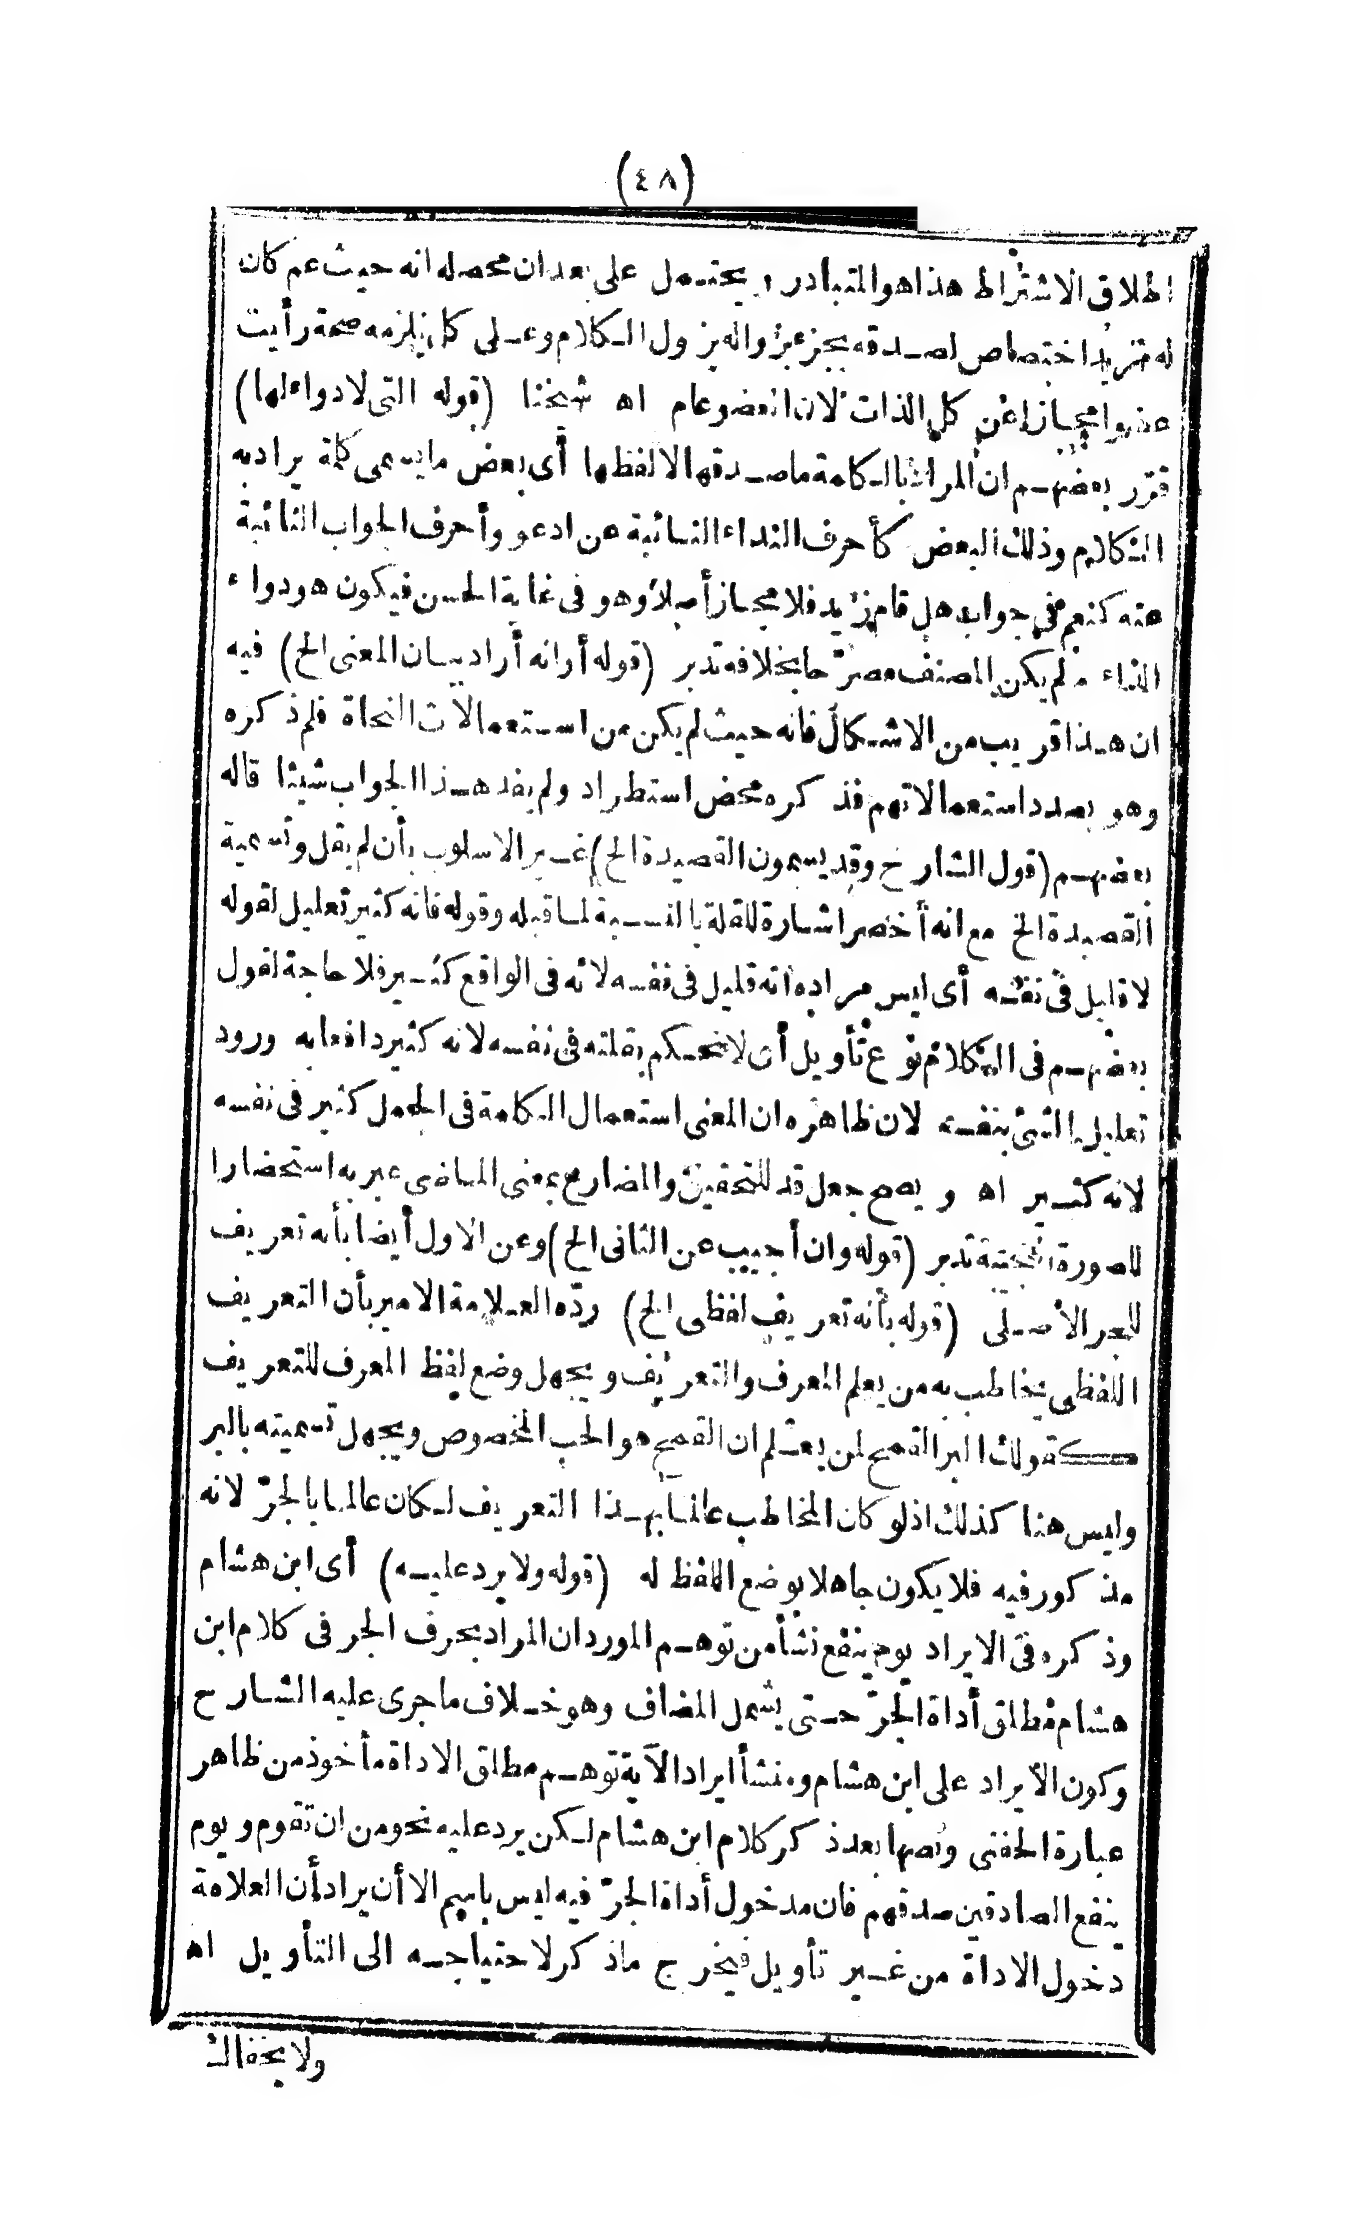 (٤٨)
اطلاق الاشتراط هذا هو المتبادر ويحتمل على بعد ان محصله انه حيث عم كان
له مزيد اختصاص لصدقه بجزء جزؤ اله يزول الكلام وعلى كل يلزمه صحة رأيت
عضوا مجازا عن كل الذات لان العضو عام اه شيخنا (قوله التى لا دواء لها)
قرر بعضهم ان المراد بالكلمة ما صدقها لا لفظها أى بعض ما يسمى كلمة يراد به
الكلام وذلك البعض كأحرف النداء النائبة عن ادعو وأحرف الجواب النائبة
عنه كنعم فى جواب هل قام زيد فلا مجاز أصلا وهو فى غاية الحسن فيكون هو دواء
الداء ولم يكن المصنف مصرّحا بخلافه تدبر (قوله أو انه أراد بيان المعنى الخ) فيه
ان هذا قريب من الاشكال فانه حيث لم يكن من استعمالات النحاة فلم ذكره
وهو بصدد استعمالاتهم فذكره محض استطراد ولم يفد هذا الجواب شيئا قاله
بعضهم (قول الشارح وقد يسمون القصيدة الخ) غير الاسلوب بأن لم يقل وتسمية
القصيدة الخ مع انه أخصر اشارة للقلة بالنسبة لما قبله وقوله فانه كثير تعليل لقوله
لا قليل فى نفسه أى ليس مراده انه قليل فى نفسه لانه فى الواقع كثير فلا حاجة لقول
بعضهم فى الكلام نوع تأويل أى لا نحكم بقلته فى نفسه لانه كثير دافعا به ورود
تعليل الشئ بنفسه لان ظاهره ان المعنى استعمال الكلمة فى الجمل كثير فى نفسه
لانه كثير اه ويصح جعل قد للتحقيق والمضارع بمعنى الماضى عبر به استحضارا
للصورة العجيبة تدبر (قوله وان أجيب عن الثانى الخ) وعن الاول أيضا بأنه تعريف
للجر الأصلى (قوله بأنه تعريف لفظى الخ) ردّه العلامة الامير بأن التعريف
اللفظى يخاطب به من يعلم المعرف والتعريف ويجهل وضع لفظ المعرف للتعريف
كقولك البر القمح لمن يعلم ان القمح هو الحب المخصوص ويجهل تسميته بالبر
وليس هنا كذلك اذ لو كان المخاطب عالما بهذا التعريف لكان عالما بالجرّ لانه
مذكور فيه فلا يكون جاهلا بوضع اللفظ له (قوله ولا يرد عليه) أى ابن هشام
وذكره فى الايراد يوم ينفع نشأ من توهم المورد ان المراد بحرف الجر فى كلام ابن
هشام مطلق أداة الجرّ حتى يشمل المضاف وهو خلاف ما جرى عليه الشارح
وكون الايراد على ابن هشام ومنشأ ايراد الآية توهم مطلق الاداة مأخوذ من ظاهر
عبارة الحفنى ونصها بعد ذكر كلام ابن هشام لكن يرد عليه نحو من ان تقوم ويوم
ينفع الصادقين صدقهم فان مدخول أداة الجرّ فيه ليس باسم الا أن يراد أن العلامة
دخول الاداة من غير تأويل فيخرج ما ذكر لاحتياجه الى التأويل اه
ولا يخفاك